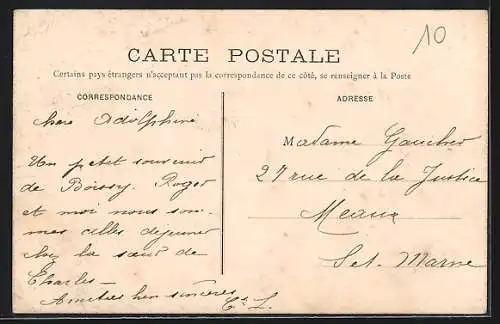 10
CARTE POSTALE
Certains pays étrangers n'acceptant pas la correspondance de ce côté, se renseigner à la Poste
CORRESPONDANCE
ADRESSE
chère Adolphine
Un petit souvenir
de Boissy. Roger
et moi nous som-
mes allés dejeuner
chez la sœur de
Charles—
Amitiés bien sincères
C. L.
Madame Gaucher
27 rue de la Justice
Meaux
Set. Marne